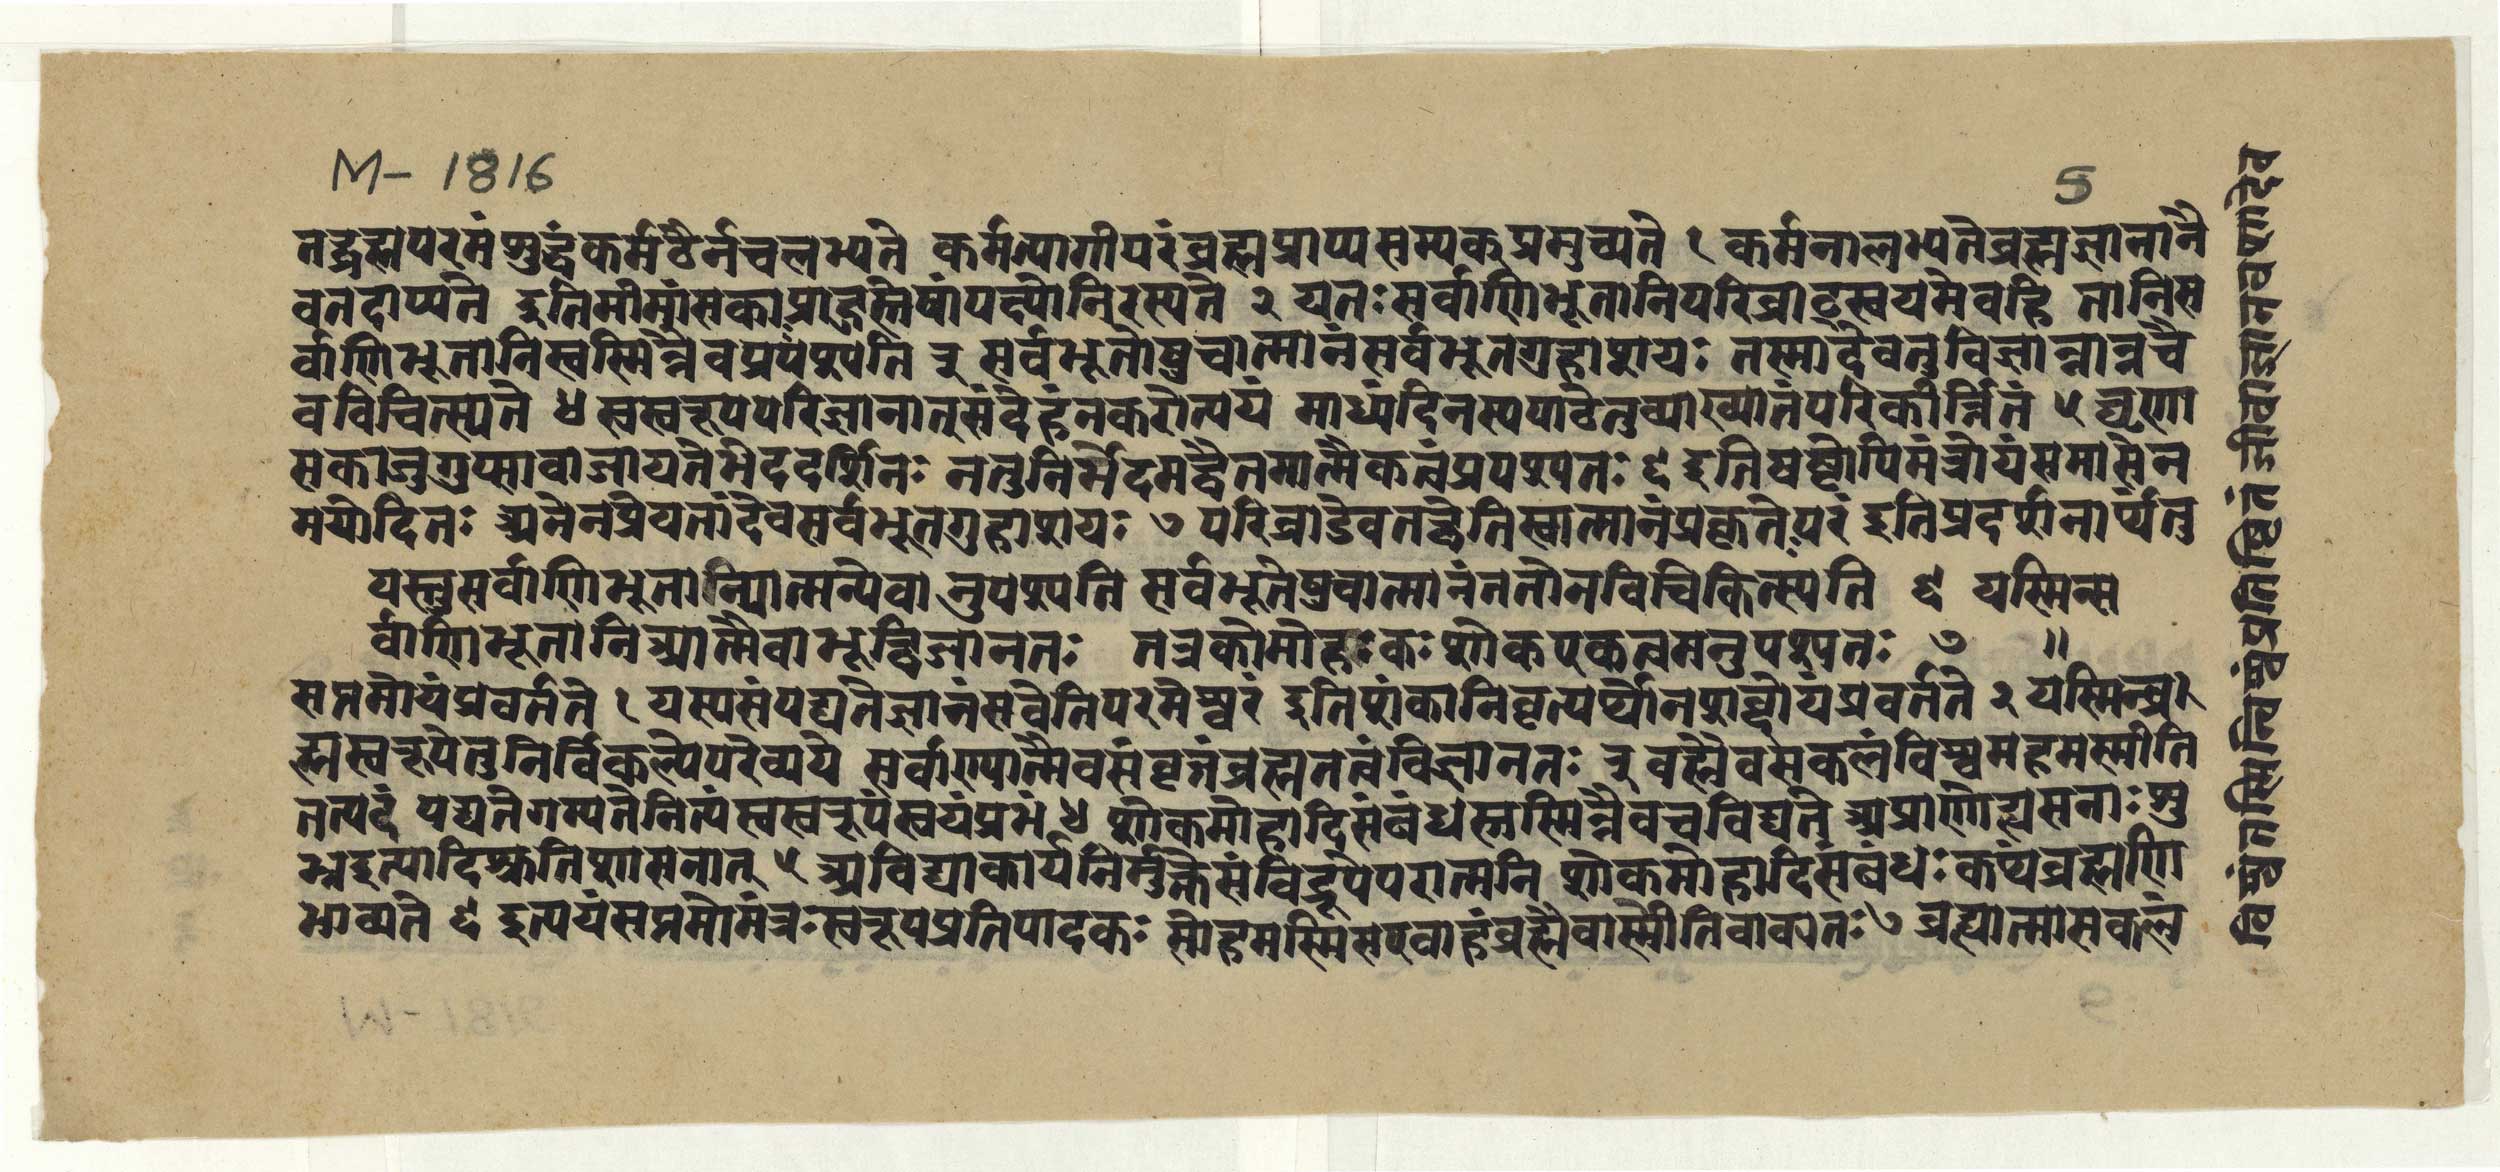 M-1816
5
तद्ब्रह्मपरमंशुद्धंकर्मठैर्नचलभ्यते कर्मत्यागीपरंब्रह्मप्राप्यसम्यक्प्रमुच्यते १ कर्मनालभ्यतेब्रह्मज्ञानानै
वतदाप्यते इतिमीमांसकाप्राहुस्तेषांपक्ष्योनिरस्यते २ यतःसर्वाणिभूतानिपरिव्राट्स्वयमेवहि तानिस
र्वाणिभूतानिस्वस्मिन्नेवप्रपंश्यति ३ सर्वभूतोषुचात्मानंसर्वभूतगुहाशयः तस्मादेवतुविज्ञान्नान्नचै
वविचित्स्यते ४ स्वस्वरूपपरिज्ञानात्संदेहंनकरोत्ययं माध्यंदिनस्यपाठेतुव्याख्यानंपरिकीर्त्तितं ५ घृणा
सकाजुगुप्सावाजायतेभेददर्शिनः नतुनिर्भेदमद्वैतमात्मैकत्वंप्रपश्यतः ६ इतिषष्ठोपिमंत्रोयंसमासेन
मयोदितः अनेनप्रेयतांदेवसर्वभूतगुहाशयः ७ परिव्राडेवतच्चेतिस्वात्मानंप्रकृतेःपरं इतिप्रदर्शनार्थंतु
यस्तुसर्वाणिभूतान्यात्मन्येवानुपश्यति सर्वभूतेषुचात्मानंततोनविचिकित्स्यति ६ यस्मिन्स
र्वाणिभूतानिआत्मैवाभूद्विजानतः तत्रकोमोहःकःशोकएकत्वमनुपश्यतः ७ ॥
सप्तमोयंप्रवर्तते १ यस्यसंपद्यतेज्ञानंसवेतिपरमेश्वरं इतिशंकानिवृत्यर्थोनशब्दोयंप्रवर्तते २ यस्मिन्ब्र
ह्मस्वरूपेतुनिर्विकल्पेपरेव्यये सर्वाण्यात्मैवसंवृत्तंब्रह्मतत्वंविजानतः ३ ब्रह्मैवसकलंविश्वमहमस्मीति
तत्पदं पद्यतेगम्यतेनित्यंस्वस्वरूपंस्वयंप्रभं ४ शोकमोहादिसंबंधस्तस्मिन्नैवचविद्यते अप्राणोह्यमनाःशु
भ्रइत्यादिश्रुतिशासनात् ५ अविद्याकार्यनिर्मुक्तेसंविद्रूपेपरात्मनि शोकमोहादिसंबंधःकथंब्रह्मणि
भाव्यते ६ इत्ययंसप्तमोमंत्रःस्वरूपप्रतिपादकः सोहमस्मिसएवाहंब्रह्मैवास्मीतिवाक्यतः ७ ब्रह्मात्मासकलं